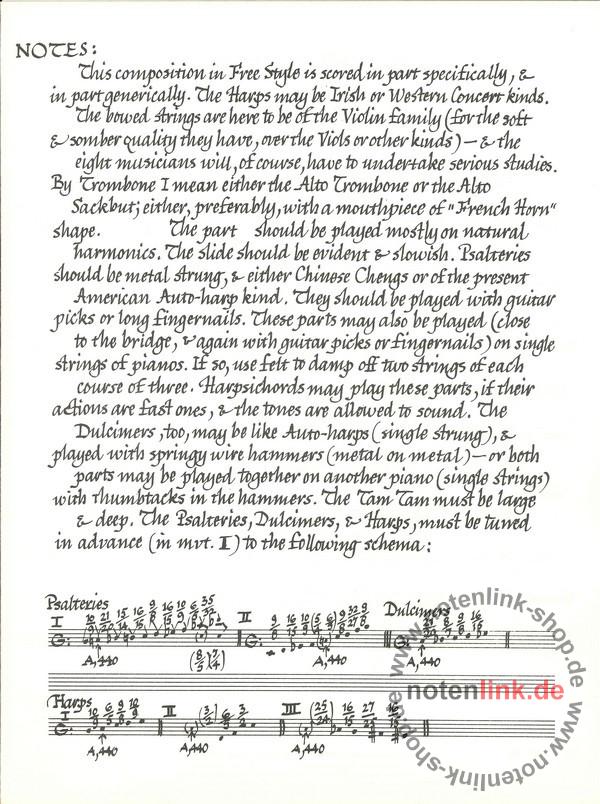 NOTES:
This composition in Free Style is scored in part specifically, &
in part generically. The Harps may be Irish or Western Concert kinds.
The bowed strings are here to be of the Violin family (for the soft
& somber quality they have, over the Viols or other kinds) — & the
eight musicians will, of course, have to undertake serious studies.
By Trombone I mean either the Alto Trombone or the Alto
Sackbut; either, preferably, with a mouthpiece of "French Horn"
shape. The part should be played mostly on natural
harmonics. The slide should be evident & slowish. Psalteries
should be metal strung, & either Chinese Chengs or of the present
American Auto-harp kind. They should be played with guitar
picks or long fingernails. These parts may also be played (close
to the bridge, & again with guitar picks or fingernails) on single
strings of pianos. If so, use felt to damp off two strings of each
course of three. Harpsichords may play these parts, if their
actions are fast ones, & the tones are allowed to sound. The
Dulcimers, too, may be like Auto-harps (single strung), &
played with springy wire hammers (metal on metal) — or both
parts may be played together on another piano (single strings)
with thumbtacks in the hammers. The Tam Tam must be large
& deep. The Psalteries, Dulcimers, & Harps, must be tuned
in advance (in mvt. I) to the following schema:
Psalteries
Dulcimers
I
II
G:
G:
G:
A, 440
(8/5) (7/4)
A, 440
A, 440
Harps
I 10/9 6/5 9/8 10/9
II (3/2) 6/5 3/2
III (25/24) 16/15 27/25 16/15
G:
A, 440
A, 440
A, 440
notenlink.de
www.notenlink-shop.de